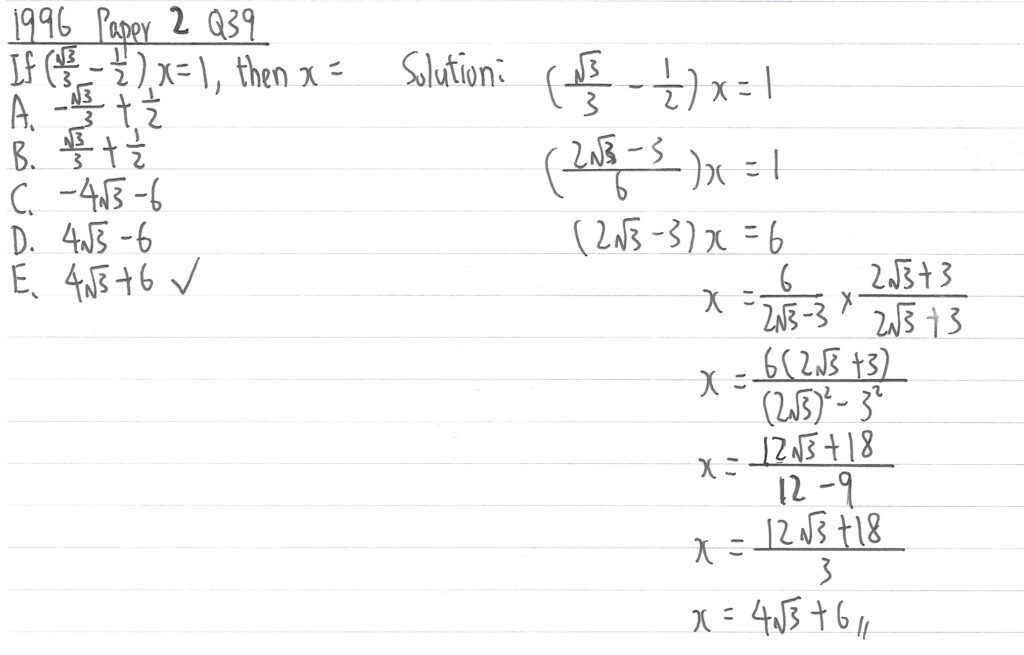 1996 Paper 2 Q39
If (√3/3 - 1/2) x = 1, then x =
A. -√3/3 + 1/2
B. √3/3 + 1/2
C. -4√3 - 6
D. 4√3 - 6
E. 4√3 + 6 ✓
Solution: (√3/3 - 1/2) x = 1
((2√3 - 3)/6) x = 1
(2√3 - 3) x = 6
x = 6/(2√3 - 3) × (2√3 + 3)/(2√3 + 3)
x = 6(2√3 + 3)/((2√3)² - 3²)
x = (12√3 + 18)/(12 - 9)
x = (12√3 + 18)/3
x = 4√3 + 6 //